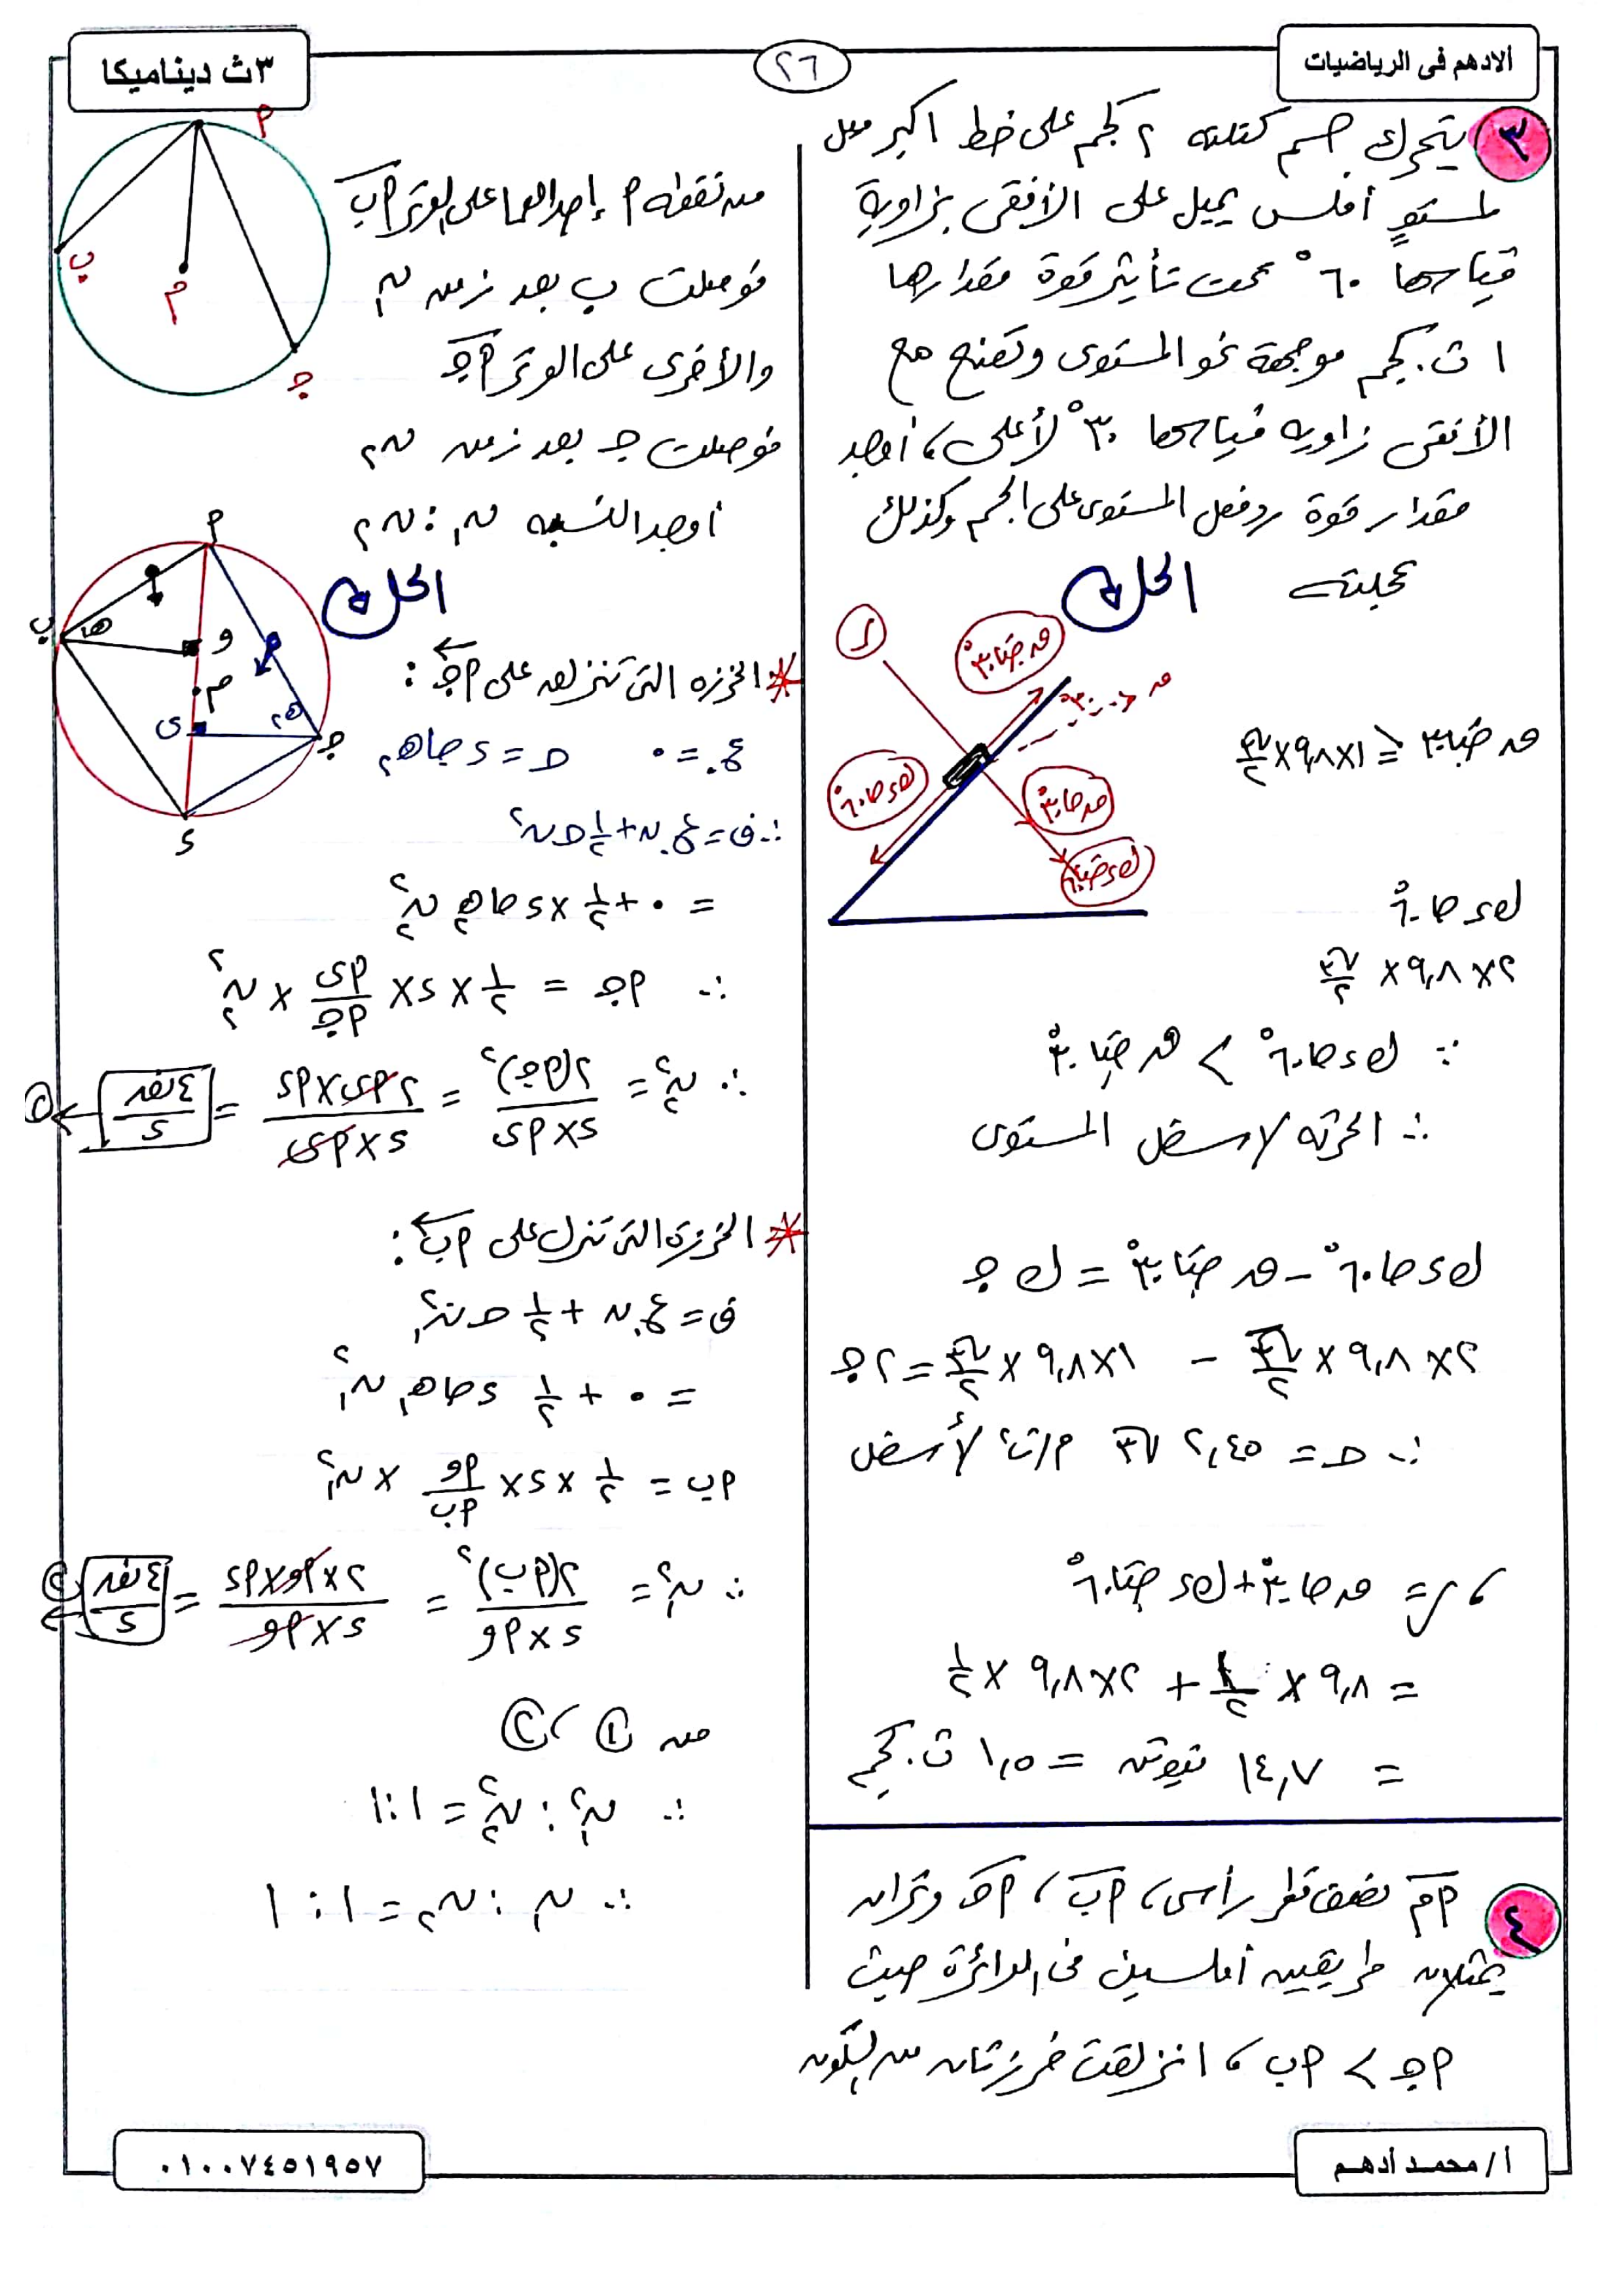 الادهم فى الرياضيات
٢٦
٣ث ديناميكا
٣ يتحرك جسم كتلته ٢ كجم على خط اكبر ميل
لمستوٍ أملس يميل على الأفقى بزاوية
قياسها ٦٠° تحت تأثير قوة مقدارها
١ ث.كجم موجهة نحو المستوى وتصنع مع
الأفقى زاويه قياسها ٣٠° لأعلى، أوجد
مقدار قوة رد فعل المستوى على الجسم وكذلك
عجلته
الحل
ر
ق جتا٣٠°
ق
٣٠°
ك د جا٦٠°
ق جا٣٠°
ك د جتا٦٠°
ق جتا٣٠ = ١×٩٫٨×√٣/٢
ك د جا٦٠°
٢×٩٫٨×√٣/٢
∵ ك د جا٦٠° > ق جتا٣٠°
∴ الحركه لأسفل المستوى
ك د جا٦٠° – ق جتا٣٠° = ك ج
٢×٩٫٨×√٣/٢ – ١×٩٫٨×√٣/٢ = ٢ج
∴ ج = ٢٫٤٥ √٣ م/ث٢ لأسفل
، ر = ق جا٣٠° + ك د جتا٦٠°
= ٩٫٨ × ١/٢ + ٢×٩٫٨ × ١/٢
= ١٤٫٧ نيوتن = ١٫٥ ث.كجم
٤ أم نصف قطر رأسى، أب، أجـ وتران
يمثلان طريقين أملسين فى الدائرة حيث
أجـ > أب، انزلقت خرزتان من السكون
من نقطه أ إحداهما على الوتر أب
فوصلت ب بعد زمن ن١
والأخرى على الوتر أجـ
فوصلت جـ بعد زمن ن٢
أوجد النسبه ن١ : ن٢
أ
ب
م
جـ
الحل
أ
ب
هـ١
و
م
ى
هـ٢
جـ
د
* الخرزه التى تنزلق على أجـ :
ع. = ٠ ج = د جا هـ٢
∴ ف = ع.ن + ١/٢ ج ن٢
= ٠ + ١/٢ × د جا هـ٢ ن٢²
∴ أجـ = ١/٢ × د × أى/أجـ × ن٢²
∴ ن٢² = ٢(أجـ)²/د×أى = ٢أى×أد/د×أى = ٤نق/د ← ①
* الخرزة التى تنزل على أب :
ف = ع.ن + ١/٢ ج ن١²
= ٠ + ١/٢ د جا هـ١ ن١²
أب = ١/٢ × د × أو/أب × ن١²
∴ ن١² = ٢(أب)²/د×أو = ٢×أو×أد/د×أو = ٤نق/د ← ②
من ① ، ②
∴ ن١² : ن٢² = ١:١
∴ ن١ : ن٢ = ١ : ١
أ/ محمد أدهم
٠١٠٠٧٤٥١٩٥٧